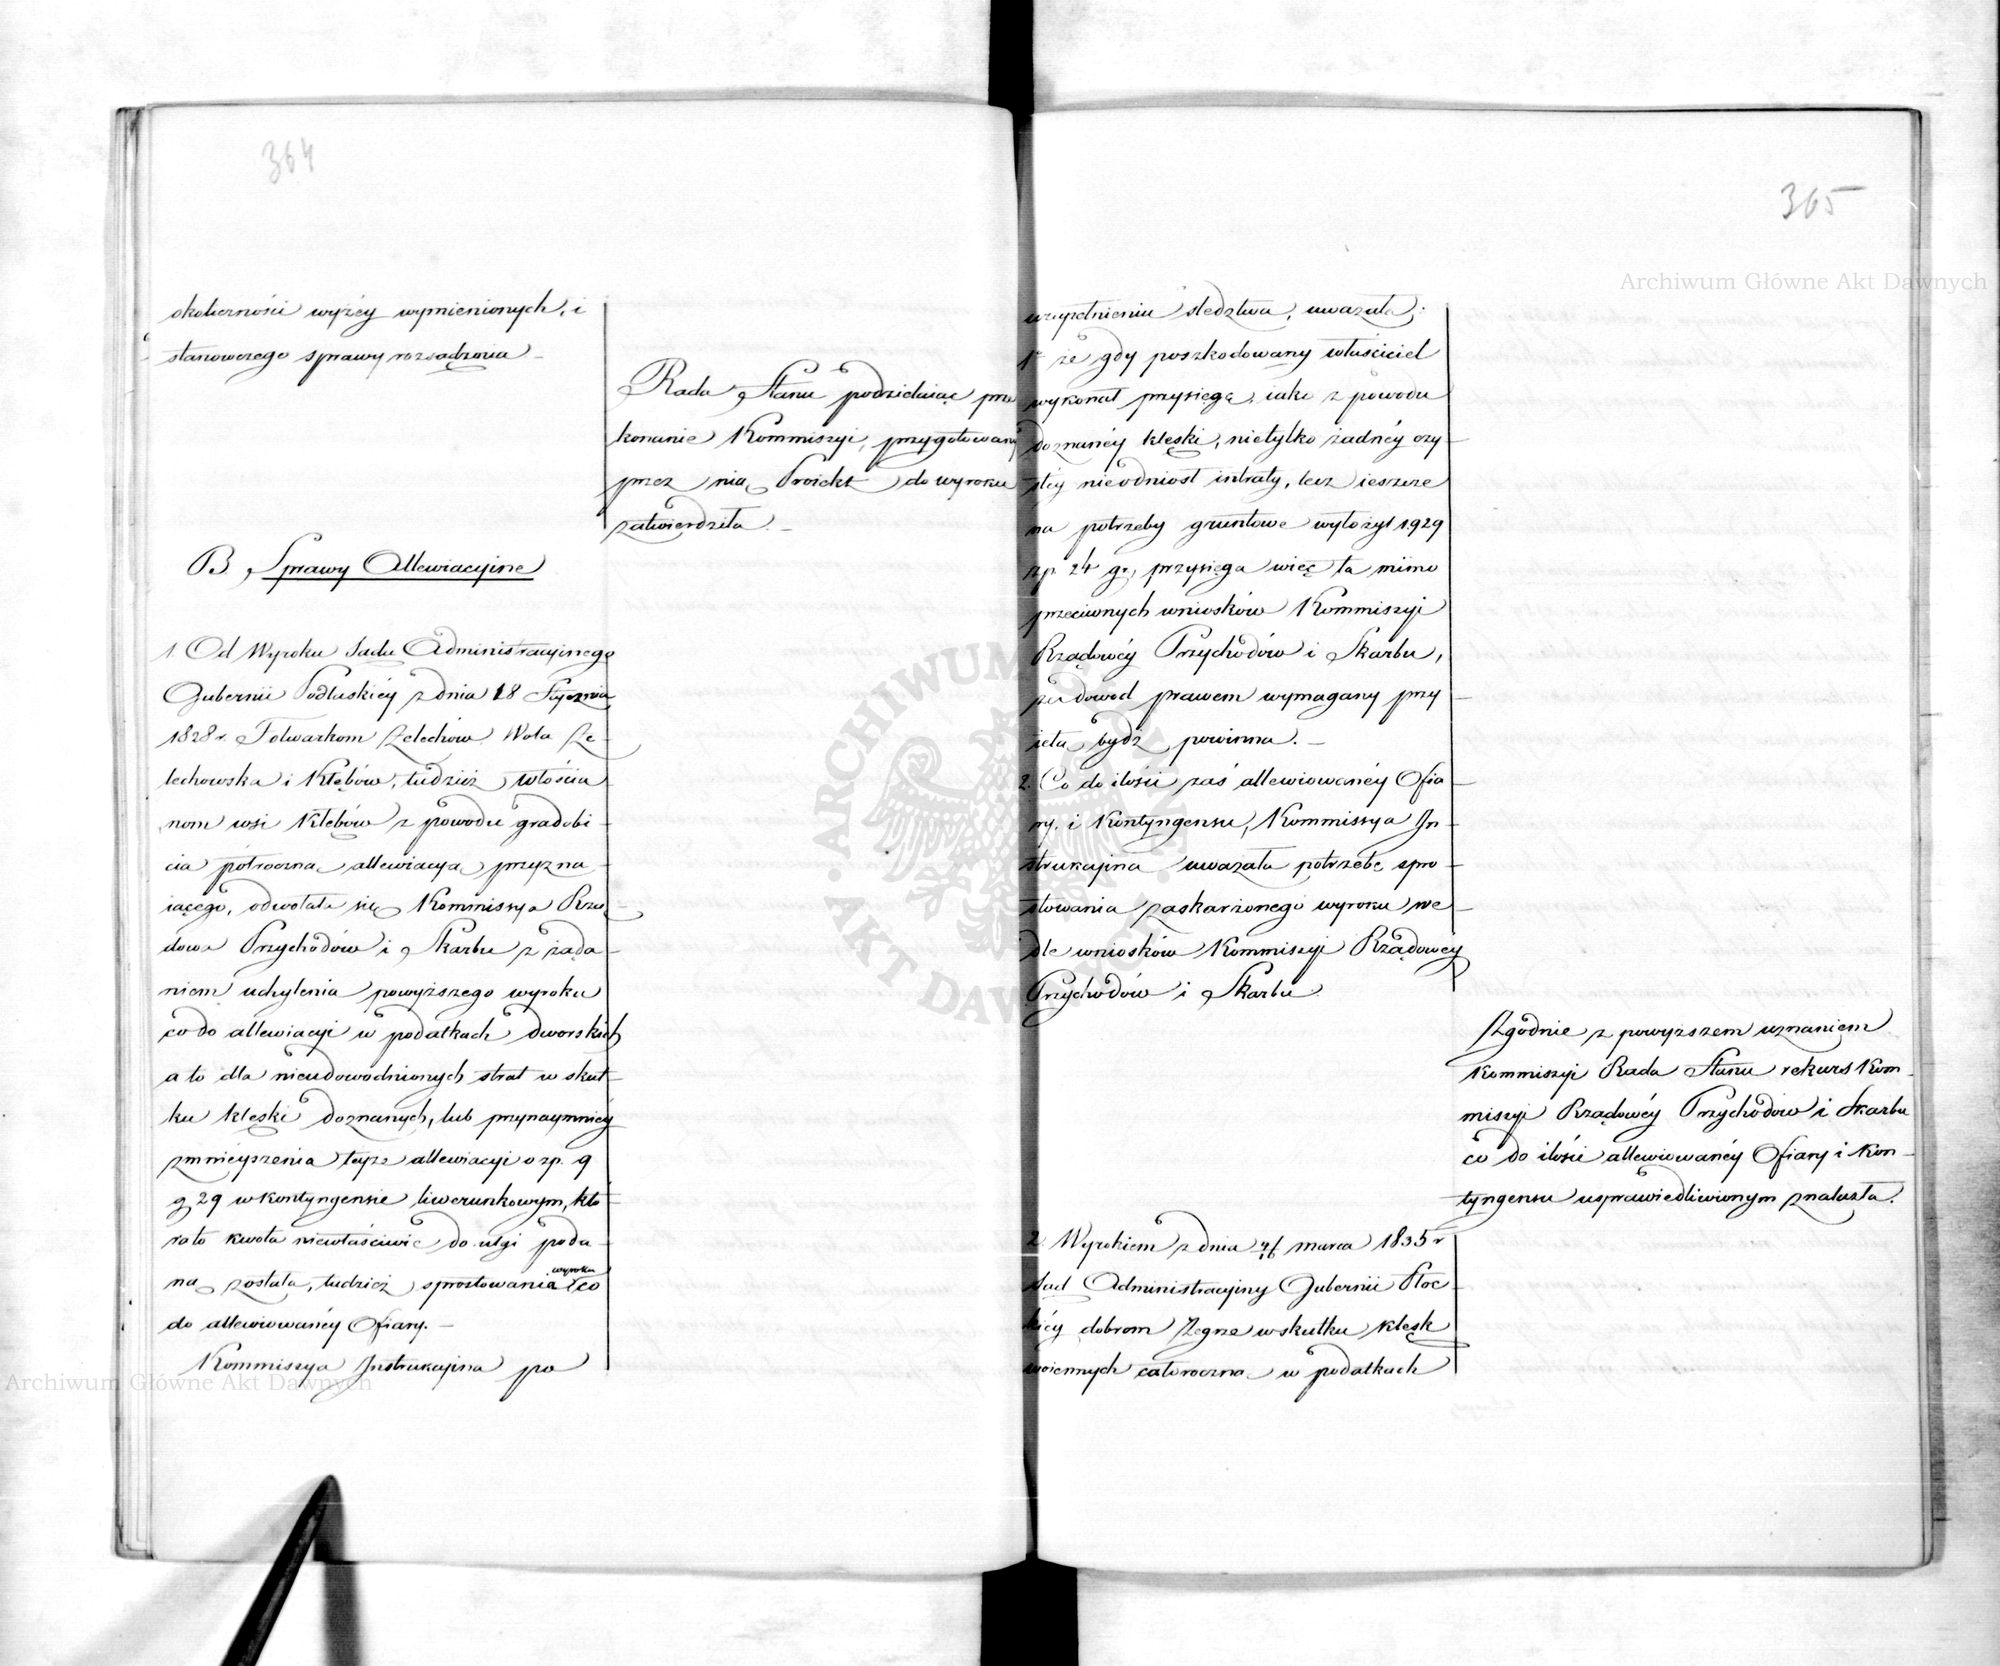 364
okoliczności wyżéy wymienionych, i
stanowczego sprawy rozsądzenia –
Rada Stanu podzielaiąc prze
konanie Kommissyi, przygotowany
przez nią Proiekt do wyroku
zatwierdziła. –
B. Sprawy Allewiacyjne
1. Od Wyroku Sądu Administracyinego
Gubernii Podlaskiéy z dnia 18 Stycznia
1828 r. Folwarkom Żelechów Wola Że
lechowska i Kłębów, tudzież włościa
nom wsi Kłębów z powodu gradobi
cia półroczną allewiacyą przyzna
iącego, odwołała się Kommissya Rzą
dowa Przychodów i Skarbu z żąda
niem uchylenia powyższego wyroku
co do allewiacyi w podatkach dworskich
a to dla nieudowodnionych strat w skut
ku klęski doznanych, lub przynaymniéy
zmnieyszenia teyże allewiacyi o zp. 9
g 29 w kontyngensie liwerunkowym, któ
ra to kwota niewłaściwie do ulgi poda
ną została, tudzież sprostowania wyroku co
do allewiowanéy Ofiary. –
Kommissya Instrukcyina po
365
uzupełnieniu śledztwa, uważała:
1e że gdy poszkodowany właściciel
wykonał przysięgę, iako z powodu
doznanéy klęski, nietylko żadnéy czy
stéy nieodniosł intraty, lecz ieszcze
na potrzeby gruntowe wyłożył 1929
zp. 24 gr, przysięga więc ta mimo
przeciwnych wniosków Kommissyi
Rządowéy Przychodów i Skarbu,
za dowod prawem wymagany przy
iętą bydź powinna. –
2. Co do ilości zaś allewiowanéy Ofia
ry i Kontyngensu, Kommissya In
strukcyina uważała potrzebę spro
stowania zaskarżonego wyroku we
dle wniosków Kommissyi Rządowéy
Przychodów i Skarbu.
Zgodnie z powyższem uznaniem
Kommissyi Rada Stanu rekurs Kom
missyi Rządowéy Przychodów i Skarbu
co do ilości allewiowanéy Ofiary i Kon
tyngensu usprawiedliwionym znalazła.
2. Wyrokiem z dnia 4/16 marca 1835 r
Sąd Administracyiny Gubernii Płoc
kiéy dobrom Zegrze w skutku klęsk
woiennych całoroczną w podatkach
Archiwum Główne Akt Dawnych
Archiwum Główne Akt Dawnych